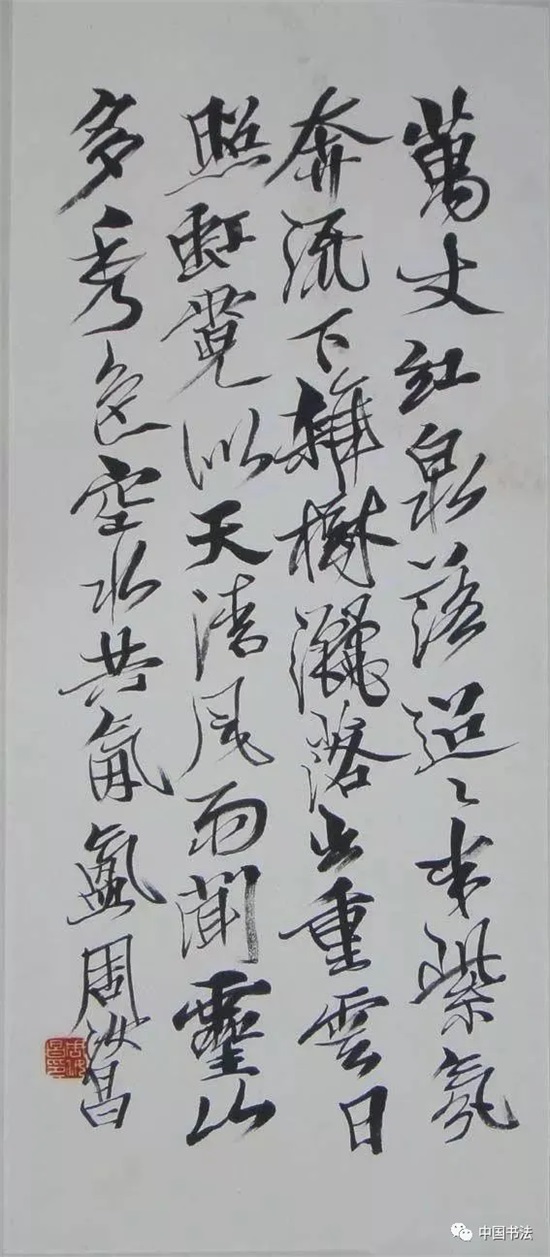 萬丈紅泉落迢〻半紫氛
奔流下雜樹灑落出重雲日
照虹霓似天清風雨聞靈山
多秀色空水共氤氳周汝昌
中国书法